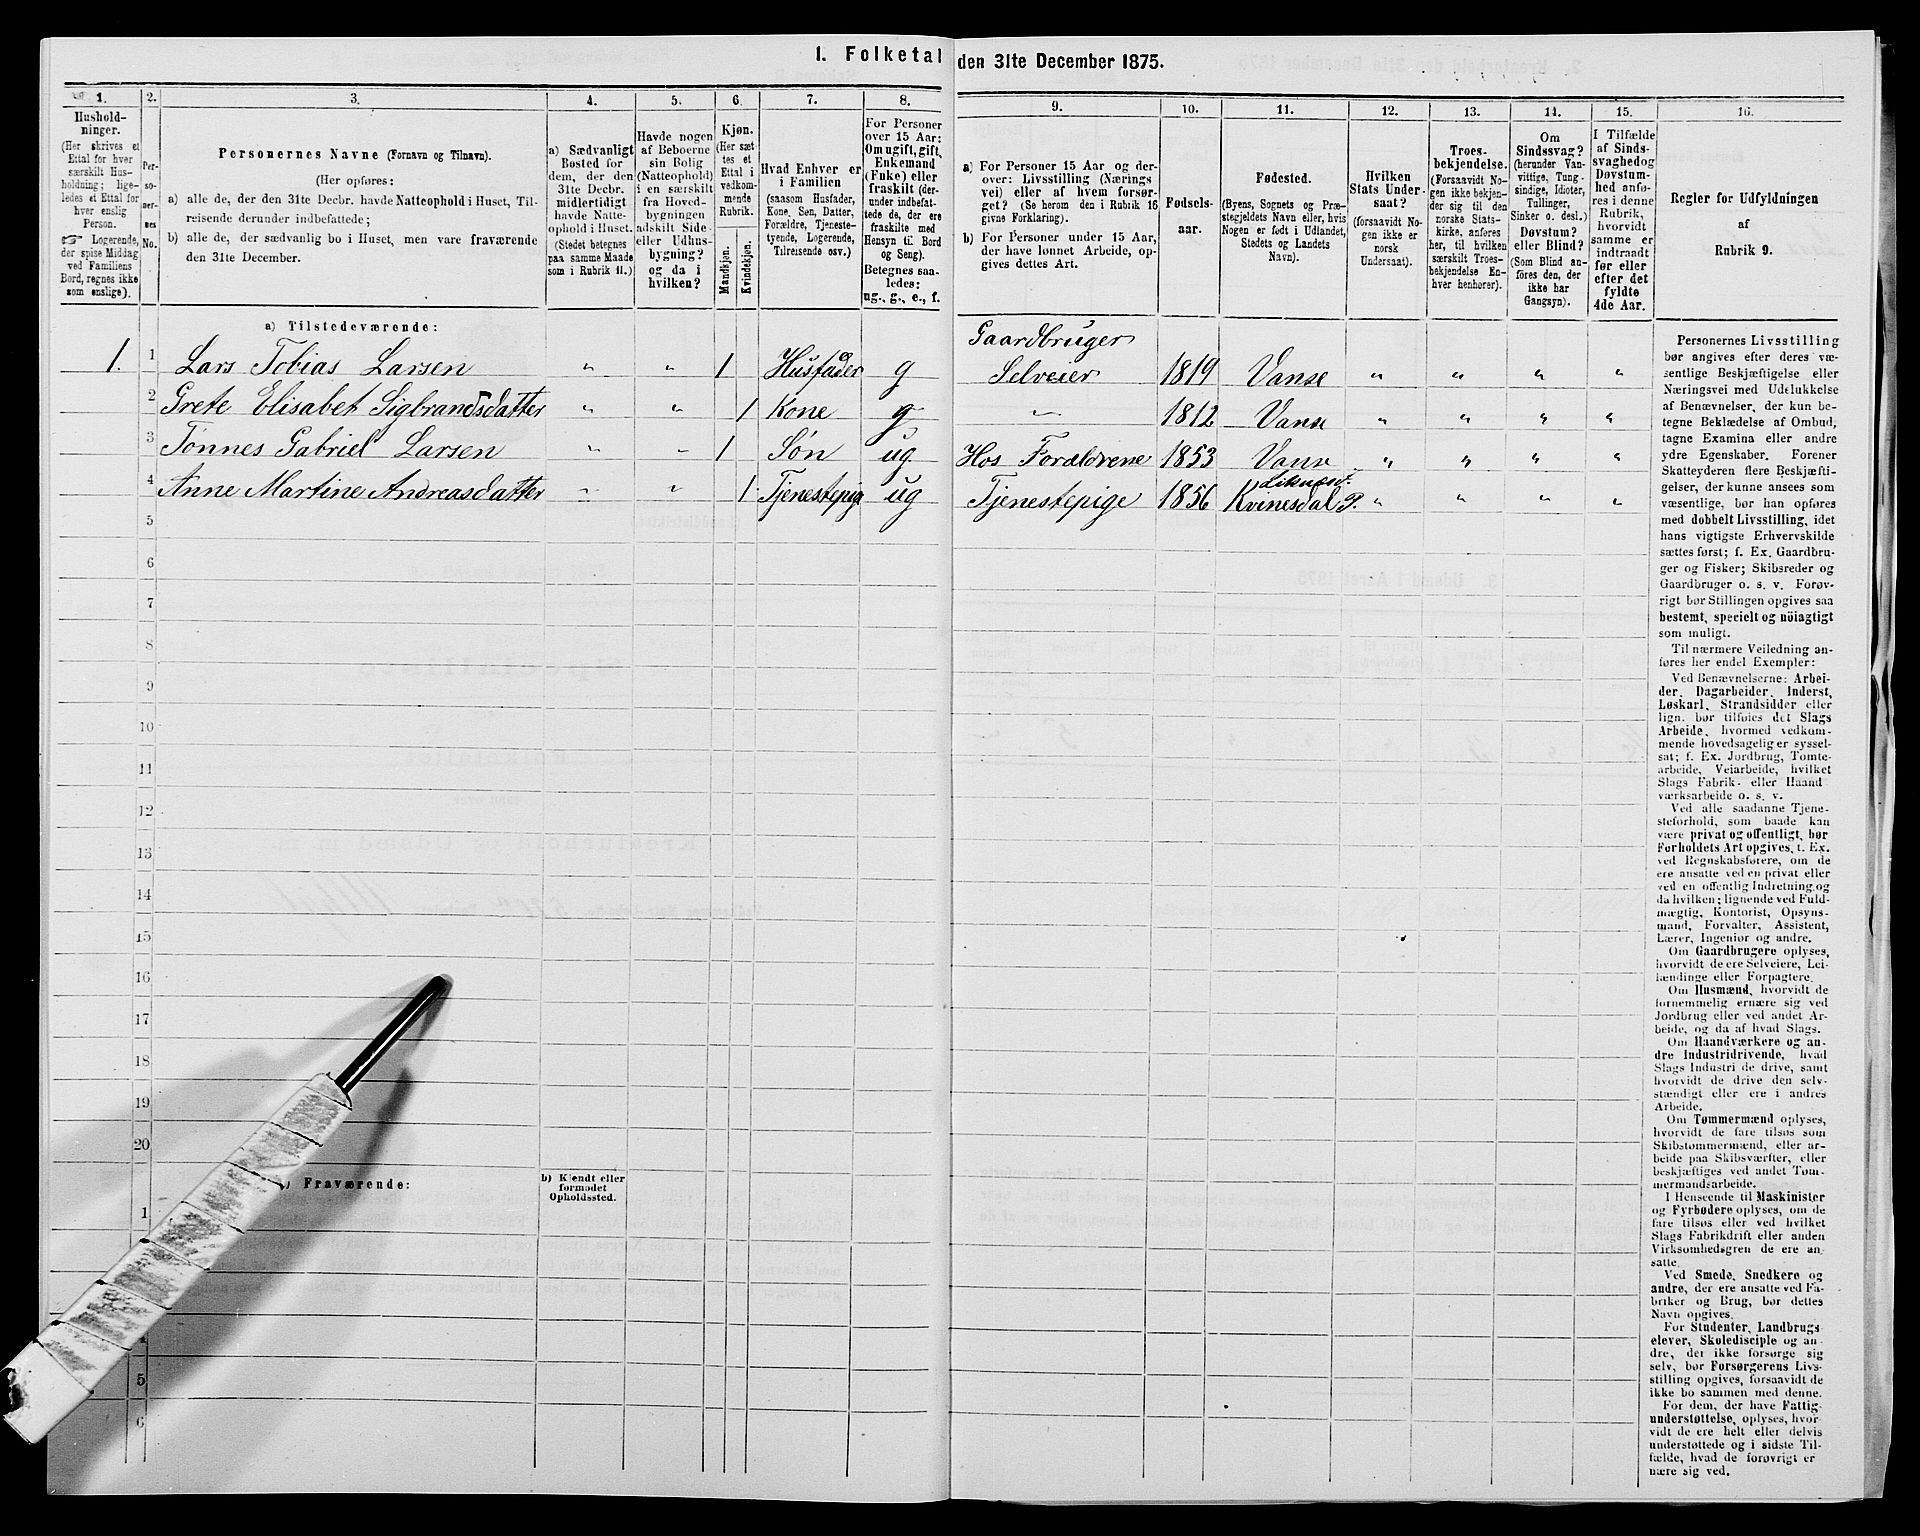 1. Folketal den 31te December 1875.
1.
Hushold-
ninger.
(Her skrives et
Ettal for hver
særskilt Hus-
holdning; lige-
ledes et Ettal for
hver enslig
Person.
☞ Logerende,
der spise Middag
ved Familiens
Bord, regnes ikke
som enslige).
2.
Per-
so-
ner-
nes
No.
3.
Personernes Navne (Fornavn og Tilnavn).
(Her opføres:
a) alle de, der den 31te Decbr. havde Natteophold i Huset, Til-
reisende derunder indbefattede;
b) alle de, der sædvanlig bo i Huset, men vare fraværende
den 31te December.
4.
a) Sædvanligt
Bosted for
dem, der den
31te Decbr.
midlertidigt
havde Natte-
ophold i Huset.
(Stedet betegnes
paa samme Maade
som i Rubrik 11.)
5.
Havde nogen
af Beboerne
sin Bolig
(Natteophold)
i en særskilt
fra Hoved-
bygningen
adskilt Side-
eller Udhus-
bygning?
og da i
hvilken?
6.
Kjøn.
(Her sæt-
tes et
Ettal i
vedkom-
mende
Rubrik.
Mandkjøn.
Kvindekjøn.
7.
Hvad Enhver er
i Familien
(saasom Husfader,
Kone, Søn, Datter,
Forældre, Tjeneste-
tyende, Logerende,
Tilreisende osv.)
8.
For Personer
over 15 Aar:
Om ugift, gift,
Enkemand
(Enke) eller
fraskilt (der-
under indbefat-
tede de, der ere
fraskilte med
Hensyn til Bord
og Seng).
Betegnes saa-
ledes:
ug., g., e., f.
9.
a) For Personer 15 Aar og der-
over: Livsstilling (Nærings
vei) eller af hvem forsør-
get? (Se herom den i Rubrik 16
givne Forklaring).
b) For Personer under 15 Aar,
der have lønnet Arbeide, op-
gives dettes Art.
10.
Fødsels-
aar.
11.
Fødested.
(Byens, Sognets og Præ-
stegjeldets Navn eller, hvis
Nogen er født i Udlandet,
Stedets og Landets
Navn).
12.
Hvilken
Stats Under-
saat?
(forsaavidt No-
gen ikke er
norsk
Undersaat).
13.
Troes-
bekjendelse.
(Forsaavidt No-
gen ikke bekjen-
der sig til den
norske Stats-
kirke, anføres
her, til hvilken
særskilt Troes-
bekjendelse En-
hver henhører).
14.
Om
Sindssvag?
(herunder Van-
vittige, Tung-
sindige, Idioter,
Tullinger,
Sinker o. desl.)
Døvstum?
eller Blind?
(Som Blind an-
føres den, der
ikke har
Gangsyn).
15.
I Tilfælde
af Sinds-
svaghed og
Døvstum-
hed anfø-
res i denne
Rubrik,
hvorvidt
samme er
indtraadt
før eller
efter det
fyldte
4de Aar.
16.
Regler for Udfyldningen
af
Rubrik 9.
a) Tilstedeværende:
1. 1 Lars Tobias Larsen „ „ 1 Husfader g Gaardbruger
Selveier 1819 Vanse „ „ „ „
2 Grete Elisabet Sigbrandsdatter „ „ 1 Kone g „ 1812 Vanse „ „ „ „
3 Tønnes Gabriel Larsen „ „ 1 Søn ug Hos Forældrene 1853 Vanse „ „ „ „
4 Anne Martine Andreasdatter „ „ 1 Tjenestepige ug Tjenestepige 1856 Kvinesdal P. „ „ „ „
5
6
7
8
9
10
11
12
13
14
15
16
17
18
19
20
Fraværende:
b) Kjendt eller
formodet
Opholdssted.
1
5
6
Personernes Livsstilling
bør angives efter deres væ-
sentlige Beskjæftigelse eller
Næringsvei med Udelukkelse
af Benævnelser, der kun be-
tegne Beklædelse af Ombud,
tagne Examina eller andre
ydre Egenskaber. Forener
Skatteyderen flere Beskjæfti-
gelser, der kunne ansees som
væsentlige, bør han opføres
med dobbelt Livsstilling, idet
hans vigtigste Erhvervskilde
sættes først; f. Ex. Gaardbru-
ger og Fisker; Skibsreder og
Gaardbruger o. s. v. Forøv-
rigt bør Stillingen opgives saa
bestemt, specielt og nöiagtigt
som muligt.
Til nærmere Veiledning an-
føres her endel Exempler:
Ved Benævnelserne: Arbei-
der, Dagarbeider, Inderst,
Løskarl, Strandsidder eller
lign. bør tilføies det Slags
Arbeide, hvormed vedkom-
mende hovedsagelig er syssel-
sat; f. Ex. Jordbrug, Tomte-
arbeide, Veiarbeide, hvilket
Slags Fabrik- eller Haand
værksarbeide o. s. v.
Ved alle saadanne Tjene-
steforhold, som baade kan
være privat og offentligt, bør
Forholdets Art opgives, f. Ex.
ved Regnskabsførere, om de
ere ansatte ved en privat eller
ved en offentlig Indretning og
da hvilken; lignende ved Fuld-
mægtig, Kontorist, Opsyns-
mand, Forvalter, Assistent,
Lærer, Ingeniør og andre.
Om Gaardbrugere oplyses,
hvorvidt de ere Selveiere, Lei-
lændinge eller Forpagtere.
Om Husmænd, hvorvidt de
fornemmelig ernære sig ved
Jordbrug eller ved andet Ar-
beide, og da af hvad Slags.
Om Haandværkere og an-
dre Industridrivende, hvad
Slags Industri de drive, samt
hvorvidt de drive den selv-
stændigt eller ere i andres
Arbeide.
Om Tømmermænd oplyses,
hvorvidt de fare tilsøs som
Skibstømmermænd, eller ar-
beide paa Skibsværfter, eller
beskjæftiges ved andet Tøm-
mermandsarbeide.
I Henseende til Maskinister
og Fyrbødere oplyses, om de
fare tilsøs eller ved hvilket
Slags Fabrikdrift eller anden
Virksomhedsgren de ere an-
satte.
Ved Smede, Snedkere og
andre, der ere ansatte ved Fa-
briker og Brug, bør dettes
Navn opgives.
For Studenter, Landbrugs
elever, Skoledisciple og an-
dre, der ikke forsørge sig
selv, bør Forsørgerens Livs-
stilling opgives, forsaavidt de
ikke bo sammen med denne.
For dem, der have Fattig-
understøttelse, oplyses, hvor-
vidt de ere helt eller delvis
understøttede og i sidste Til-
fælde, hvad de forøvrigt er
nære sig ved.